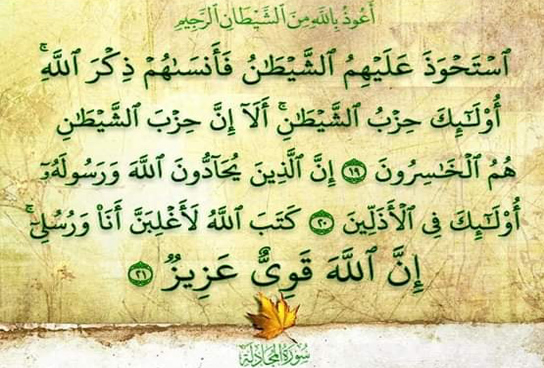 أَعُوذُ بِاللَّهِ مِنَ ٱلشَّيْطَانِ ٱلرَّجِيمِ
ٱسْتَحْوَذَ عَلَيْهِمُ ٱلشَّيْطَٰنُ فَأَنسَىٰهُمْ ذِكْرَ ٱللَّهِ ۚ
أُوْلَٰٓئِكَ حِزْبُ ٱلشَّيْطَٰنِ ۚ أَلَآ إِنَّ حِزْبَ ٱلشَّيْطَٰنِ
هُمُ ٱلْخَٰسِرُونَ ١٩ إِنَّ ٱلَّذِينَ يُحَآدُّونَ ٱللَّهَ وَرَسُولَهُۥٓ
أُوْلَٰٓئِكَ فِى ٱلْأَذَلِّينَ ٢٠ كَتَبَ ٱللَّهُ لَأَغْلِبَنَّ أَنَا۠ وَرُسُلِىٓ ۚ
إِنَّ ٱللَّهَ قَوِىٌّ عَزِيزٌ ٢١
سُورَةُ المُجَادلَة